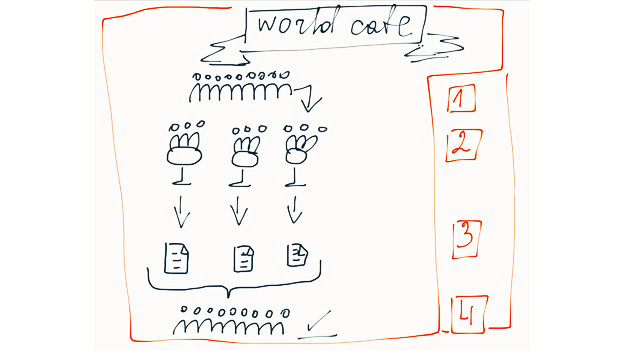 world cafe
1
2
3
4